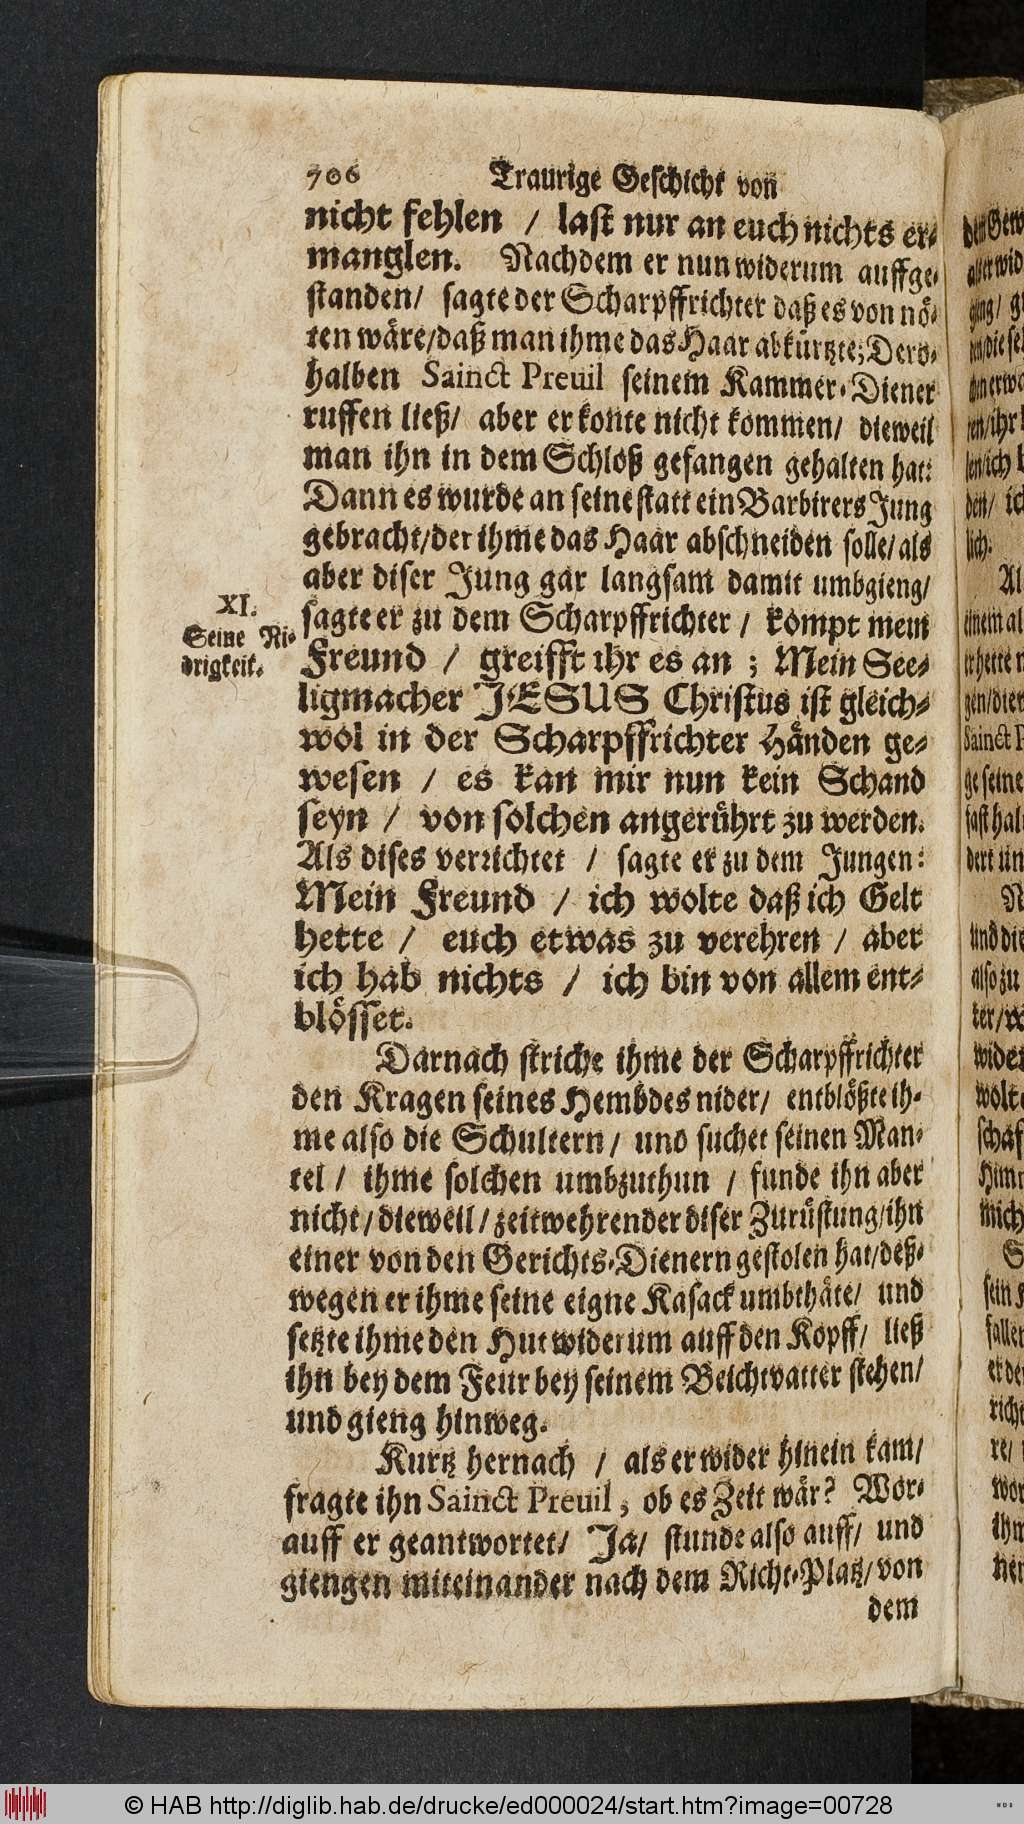 706 Traurige Geschicht von
nicht fehlen / last nur an euch nichts er-
manglen. Nachdem er nun widerum auffge-
standen/ sagte der Scharpffrichter daß es von nö-
ten wäre/daß man ihme das Haar abkürtzte; Dero-
halben Sainct Preuil seinem Kammer-Diener
ruffen ließ/ aber er konte nicht kommen/ dieweil
man ihn in dem Schloß gefangen gehalten hat:
Dann es wurde an seine statt ein Barbirers Jung
gebracht/der ihme das Haar abschneiden solle/als
aber diser Jung gar langsam damit umbgieng/
XI.
Seine Ni-
drigkeit.
sagte er zu dem Scharpffrichter / kompt mein
Freund / greifft ihr es an ; Mein See-
ligmacher JESUS Christus ist gleich-
wol in der Scharpffrichter Händen ge-
wesen / es kan mir nun kein Schand
seyn / von solchen angerührt zu werden.
Als dises verrichtet / sagte er zu dem Jungen:
Mein Freund / ich wolte daß ich Gelt
hette / euch etwas zu verehren / aber
ich hab nichts / ich bin von allem ent-
blösset.
Darnach striche ihme der Scharpffrichter
den Kragen seines Hembdes nider/ entblößte ih-
me also die Schultern/ und suchet seinen Man-
tel / ihme solchen umbzuthun / funde ihn aber
nicht/dieweil/zeitwehrender diser Zurüstung/ihn
einer von den Gerichts-Dienern gestolen hat/deß-
wegen er ihme seine eigne Kasack umbthäte/ und
setzte ihme den Hut widerum auff den Kopff/ ließ
ihn bey dem Feur bey seinem Beichtvatter stehen/
und gieng hinweg.
Kurtz hernach / als er wider hinein kam/
fragte ihn Sainct Preuil, ob es Zeit wär? Wor-
auff er geantwortet/ Ja/ stunde also auff/ und
giengen miteinander nach dem Richt-Platz/von
dem
© HAB http://diglib.hab.de/drucke/ed000024/start.htm?image=00728